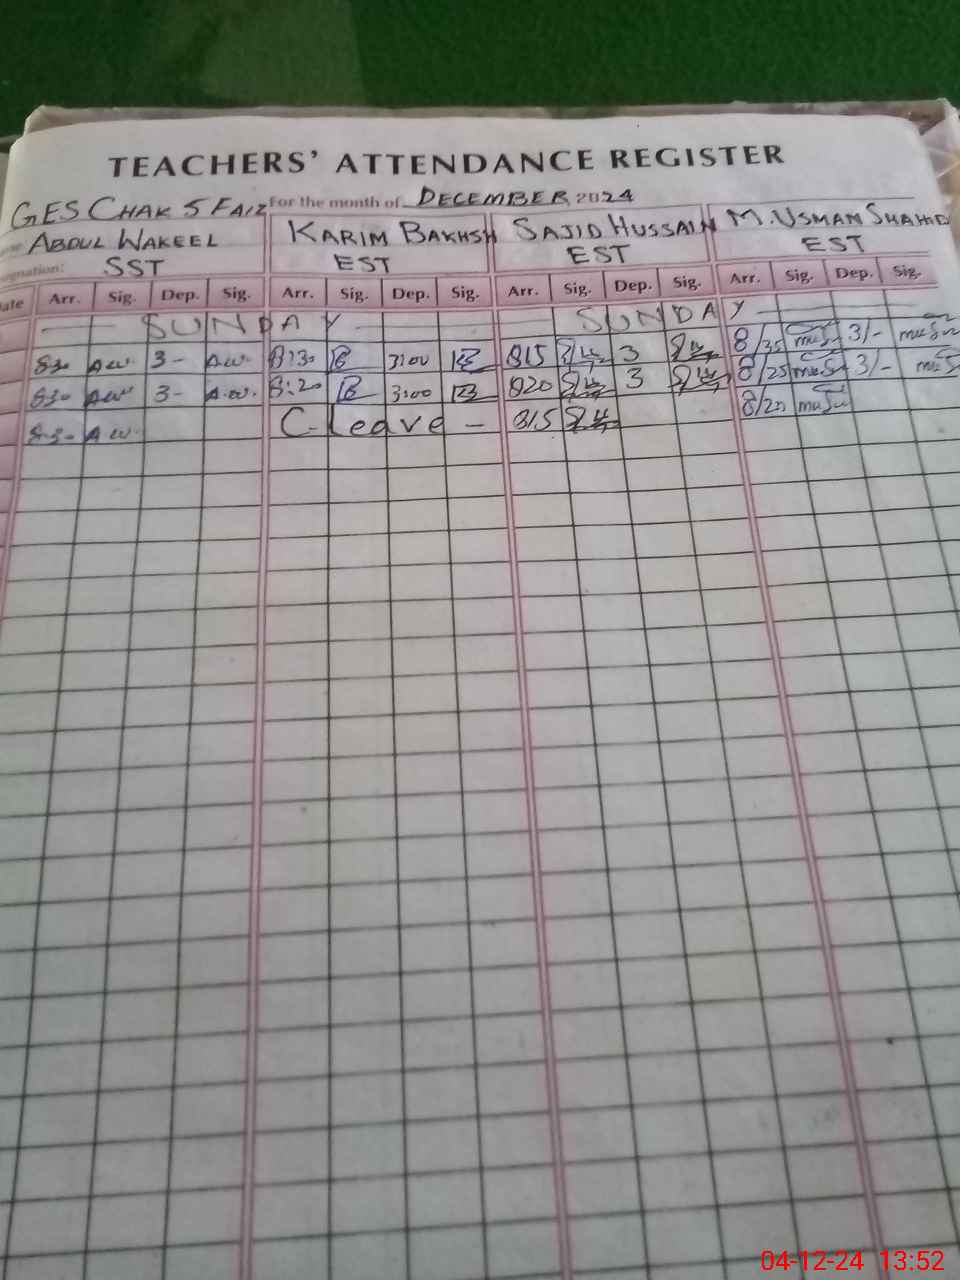 TEACHERS' ATTENDANCE REGISTER
GES CHAK 5 FAIZ For the month of DECEMBER 2024
ABDUL WAKEEL KARIM BAKHSH SAJID HUSSAIN M. USMAN SHAHID
SST EST EST EST
Arr. Sig. Dep. Sig. Arr. Sig. Dep. Sig. Arr. Sig. Dep. Sig. Arr. Sig. Dep. Sig.
SUNDAY SUNDAY
830 A.W 3- A.W. 8:30 B 3:00 815 3 8/35 3/-
830 A.W 3- A.W. 8:20 B 3:00 820 3 8/25 3/-
8-30 A.W. C-Leave - 815 8/20
04-12-24 13:52